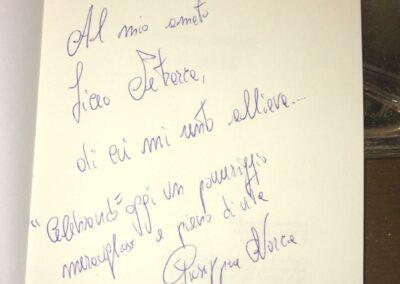 Al mio amato
Liceo Petrarca,
di cui mi sento allieva...
"Celebrando" oggi un pomeriggio
meraviglioso e pieno di vita
Giuseppina Norcia